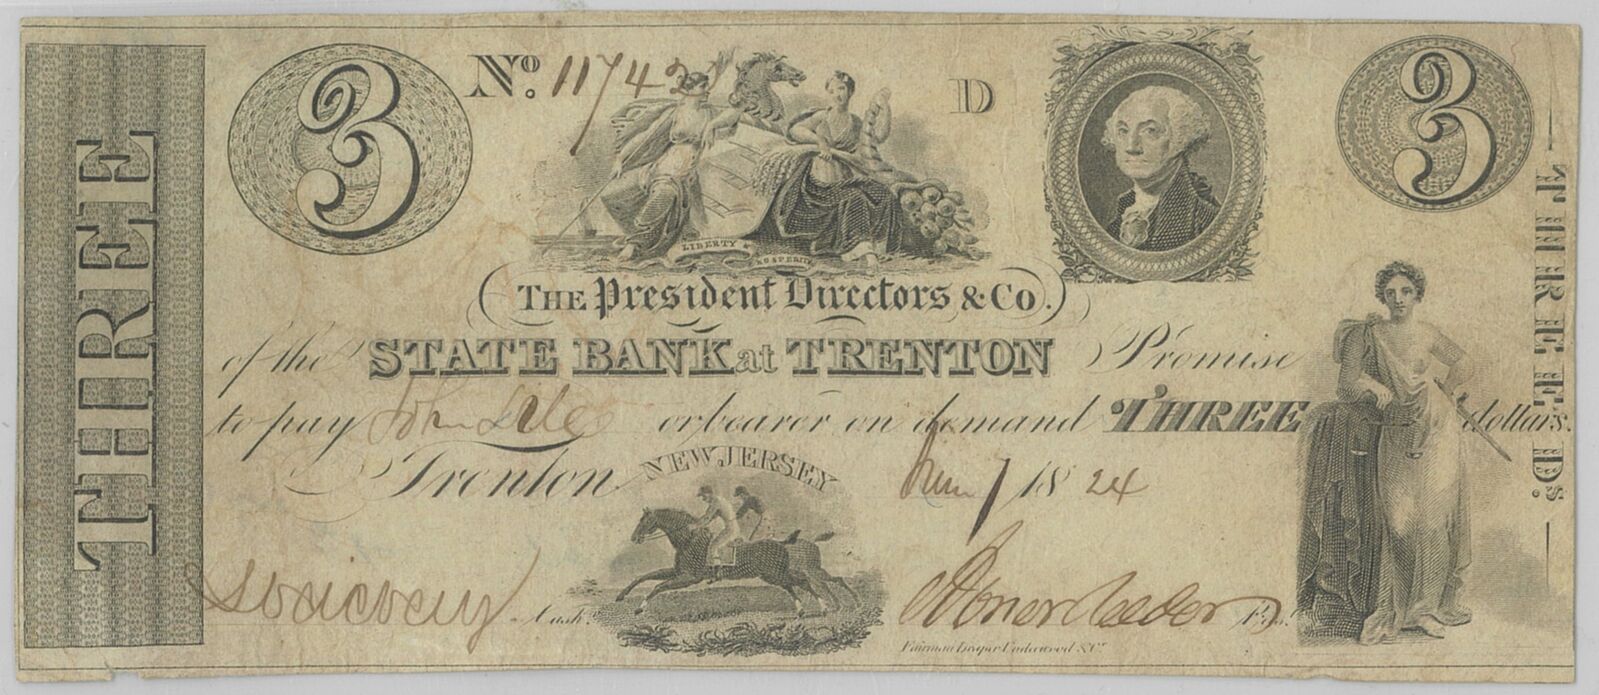 THREE
3
No. 117421
D
3
THREE Ds.
LIBERTY &
PROSPERITY
THE President Directors & Co.
of the STATE BANK at TRENTON Promise
to pay John or bearer on demand THREE dollars.
Trenton NEW JERSEY 18 24
Cashr.
Prest.
Fairman Draper Underwood & Co.